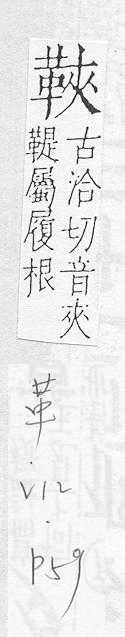 鞅
古洽切音夾
鞮屬履根
革
V12
P59